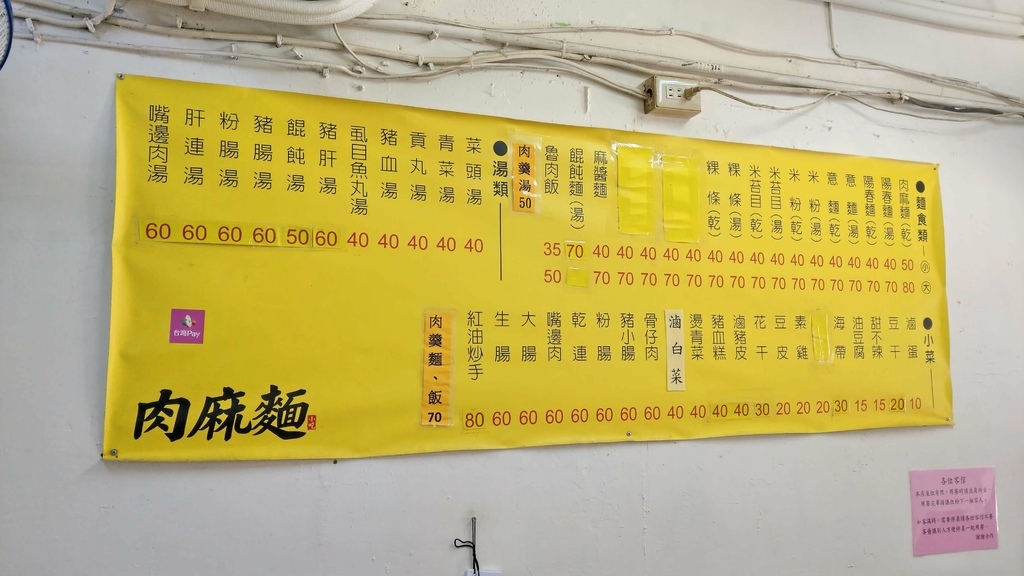 ●麵食類 小 大
肉麻麵(乾) 50 80
陽春麵(湯) 40 70
陽春麵(乾) 40 70
意麵(湯) 40 70
意麵(乾) 40 70
米粉(湯) 40 70
米粉(乾) 40 70
米苔目(湯) 40 70
米苔目(乾) 40 70
粿條(湯) 40 70
粿條(乾) 40 70
40 70
40 70
麻醬麵 40 70
餛飩麵(湯) 70
魯肉飯 35 50
肉羹湯50
●湯類
菜頭湯 40
青菜湯 40
貢丸湯 40
豬血湯 40
虱目魚丸湯 40
豬肝湯 60
餛飩湯 50
豬腸湯 60
粉腸湯 60
肝連湯 60
嘴邊肉湯 60
●小菜
滷蛋 10
豆干 20
甜不辣 15
油豆腐 15
海帶 30
20
素雞 20
豆皮 20
花干 30
滷豬皮 40
豬血糕 40
燙青菜 40
滷白菜 40
骨仔肉 60
豬小腸 60
粉腸 60
乾連 60
嘴邊肉 60
大腸 60
生腸 60
紅油炒手 80
肉羹麵、飯70
台灣Pay
肉麻麵